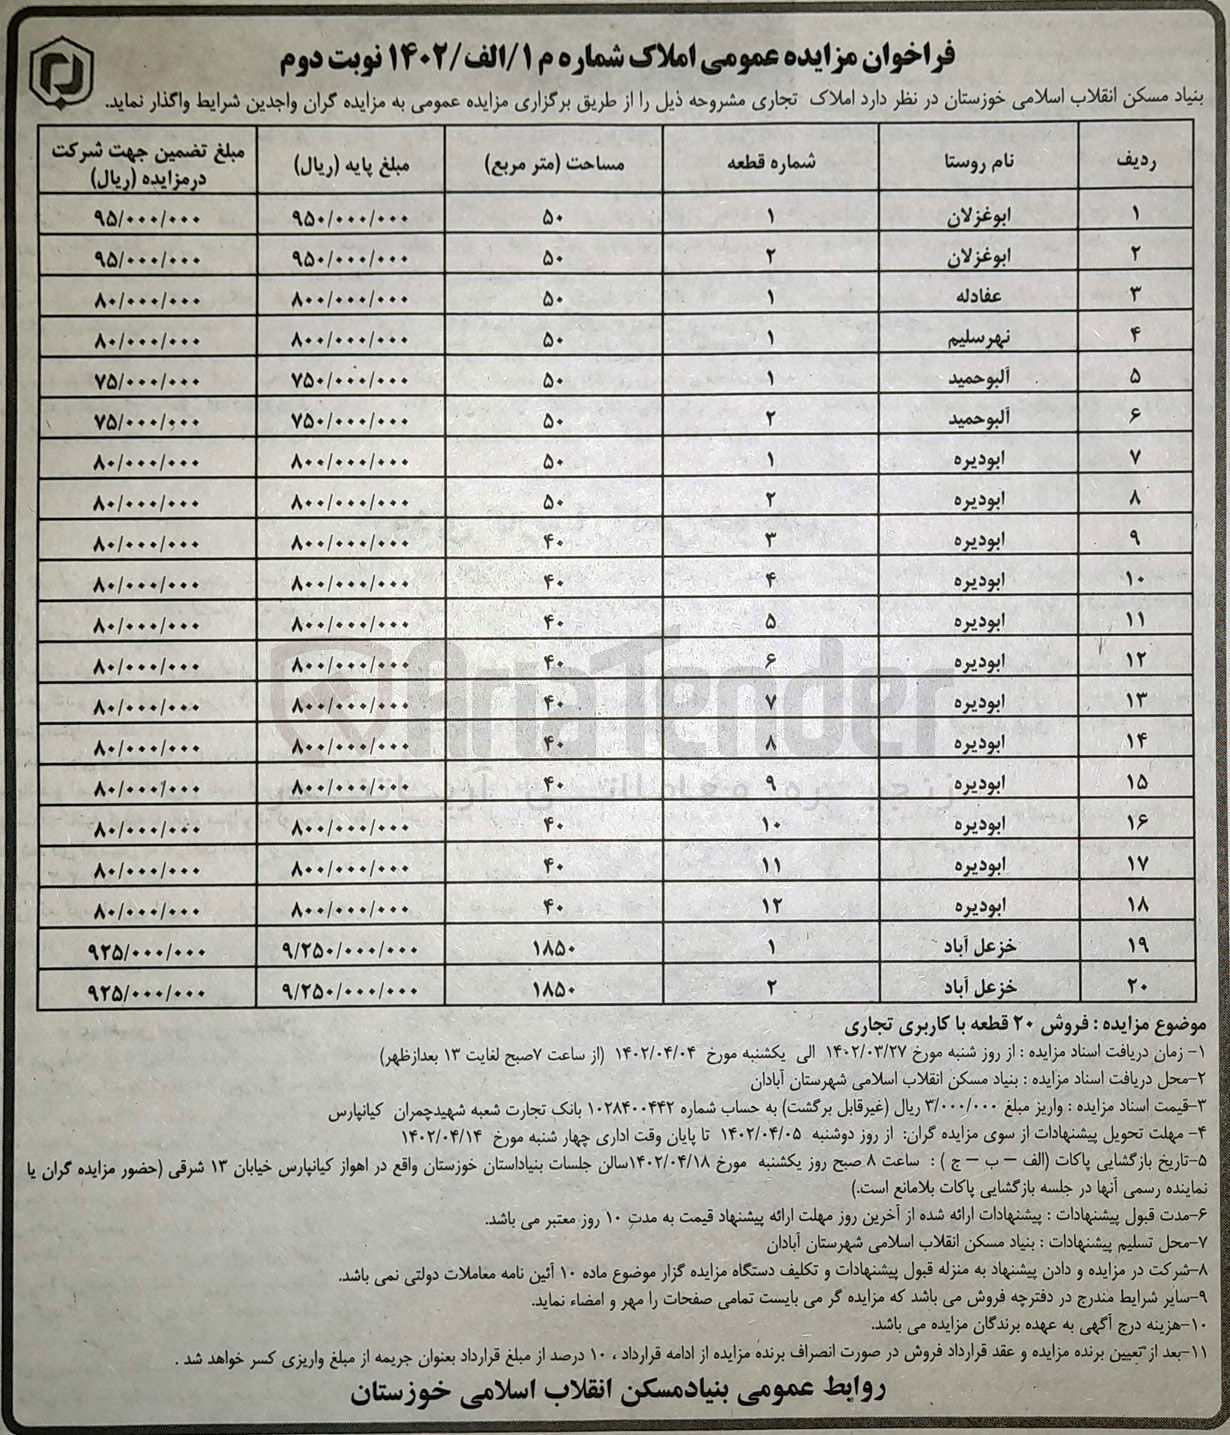 فراخوان مزایده عمومی املاک شماره م ۱/الف/۱۴۰۲ نوبت دوم
بنیاد مسکن انقلاب اسلامی خوزستان در نظر دارد املاک تجاری مشروحه ذیل را از طریق برگزاری مزایده عمومی به مزایده گران واجدین شرایط واگذار نماید.
ردیف نام روستا شماره قطعه مساحت (متر مربع) مبلغ پایه (ریال) مبلغ تضمین جهت شرکت درمزایده (ریال)
۱ ابوغزلان ۱ ۵۰ ۹۵۰/۰۰۰/۰۰۰ ۹۵/۰۰۰/۰۰۰
۲ ابوغزلان ۲ ۵۰ ۹۵۰/۰۰۰/۰۰۰ ۹۵/۰۰۰/۰۰۰
۳ عفادله ۱ ۵۰ ۸۰۰/۰۰۰/۰۰۰ ۸۰/۰۰۰/۰۰۰
۴ نهرسلیم ۱ ۵۰ ۸۰۰/۰۰۰/۰۰۰ ۸۰/۰۰۰/۰۰۰
۵ آلبوحمید ۱ ۵۰ ۷۵۰/۰۰۰/۰۰۰ ۷۵/۰۰۰/۰۰۰
۶ آلبوحمید ۲ ۵۰ ۷۵۰/۰۰۰/۰۰۰ ۷۵/۰۰۰/۰۰۰
۷ ابودیره ۱ ۵۰ ۸۰۰/۰۰۰/۰۰۰ ۸۰/۰۰۰/۰۰۰
۸ ابودیره ۲ ۵۰ ۸۰۰/۰۰۰/۰۰۰ ۸۰/۰۰۰/۰۰۰
۹ ابودیره ۳ ۴۰ ۸۰۰/۰۰۰/۰۰۰ ۸۰/۰۰۰/۰۰۰
۱۰ ابودیره ۴ ۴۰ ۸۰۰/۰۰۰/۰۰۰ ۸۰/۰۰۰/۰۰۰
۱۱ ابودیره ۵ ۴۰ ۸۰۰/۰۰۰/۰۰۰ ۸۰/۰۰۰/۰۰۰
۱۲ ابودیره ۶ ۴۰ ۸۰۰/۰۰۰/۰۰۰ ۸۰/۰۰۰/۰۰۰
۱۳ ابودیره ۷ ۴۰ ۸۰۰/۰۰۰/۰۰۰ ۸۰/۰۰۰/۰۰۰
۱۴ ابودیره ۸ ۴۰ ۸۰۰/۰۰۰/۰۰۰ ۸۰/۰۰۰/۰۰۰
۱۵ ابودیره ۹ ۴۰ ۸۰۰/۰۰۰/۰۰۰ ۸۰/۰۰۰/۰۰۰
۱۶ ابودیره ۱۰ ۴۰ ۸۰۰/۰۰۰/۰۰۰ ۸۰/۰۰۰/۰۰۰
۱۷ ابودیره ۱۱ ۴۰ ۸۰۰/۰۰۰/۰۰۰ ۸۰/۰۰۰/۰۰۰
۱۸ ابودیره ۱۲ ۴۰ ۸۰۰/۰۰۰/۰۰۰ ۸۰/۰۰۰/۰۰۰
۱۹ خزعل آباد ۱ ۱۸۵۰ ۹/۲۵۰/۰۰۰/۰۰۰ ۹۲۵/۰۰۰/۰۰۰
۲۰ خزعل آباد ۲ ۱۸۵۰ ۹/۲۵۰/۰۰۰/۰۰۰ ۹۲۵/۰۰۰/۰۰۰
AriaTender
موضوع مزایده : فروش ۲۰ قطعه با کاربری تجاری
۱- زمان دریافت اسناد مزایده : از روز شنبه مورخ ۱۴۰۲/۰۳/۲۷ الی یکشنبه مورخ ۱۴۰۲/۰۴/۰۴ (از ساعت ۷صبح لغایت ۱۳ بعدازظهر)
۲-محل دریافت اسناد مزایده : بنیاد مسکن انقلاب اسلامی شهرستان آبادان
۳-قیمت اسناد مزایده : واریز مبلغ ۳/۰۰۰/۰۰۰ ریال (غیرقابل برگشت) به حساب شماره ۱۰۲۸۴۰۰۴۴۲ بانک تجارت شعبه شهیدچمران کیانپارس
۴- مهلت تحویل پیشنهادات از سوی مزایده گران: از روز دوشنبه ۱۴۰۲/۰۴/۰۵ تا پایان وقت اداری چهار شنبه مورخ ۱۴۰۲/۰۴/۱۴
۵-تاریخ بازگشایی پاکات (الف – ب – ج ) : ساعت ۸ صبح روز یکشنبه مورخ ۱۴۰۲/۰۴/۱۸سالن جلسات بنیاداستان خوزستان واقع در اهواز کیانپارس خیابان ۱۳ شرقی (حضور مزایده گران یا
نماینده رسمی آنها در جلسه بازگشایی پاکات بلامانع است.)
۶-مدت قبول پیشنهادات : پیشنهادات ارائه شده از آخرین روز مهلت ارائه پیشنهاد قیمت به مدت ۱۰ روز معتبر می باشد.
۷-محل تسلیم پیشنهادات : بنیاد مسکن انقلاب اسلامی شهرستان آبادان
۸-شرکت در مزایده و دادن پیشنهاد به منزله قبول پیشنهادات و تکلیف دستگاه مزایده گزار موضوع ماده ۱۰ آئین نامه معاملات دولتی نمی باشد.
۹-سایر شرایط مندرج در دفترچه فروش می باشد که مزایده گر می بایست تمامی صفحات را مهر و امضاء نماید.
۱۰-هزینه درج آگهی به عهده برندگان مزایده می باشد.
۱۱-بعد از تعیین برنده مزایده و عقد قرارداد فروش در صورت انصراف برنده مزایده از ادامه قرارداد ، ۱۰ درصد از مبلغ قرارداد بعنوان جریمه از مبلغ واریزی کسر خواهد شد .
روابط عمومی بنیادمسکن انقلاب اسلامی خوزستان